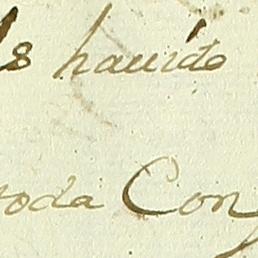 ls hauido
toda Con